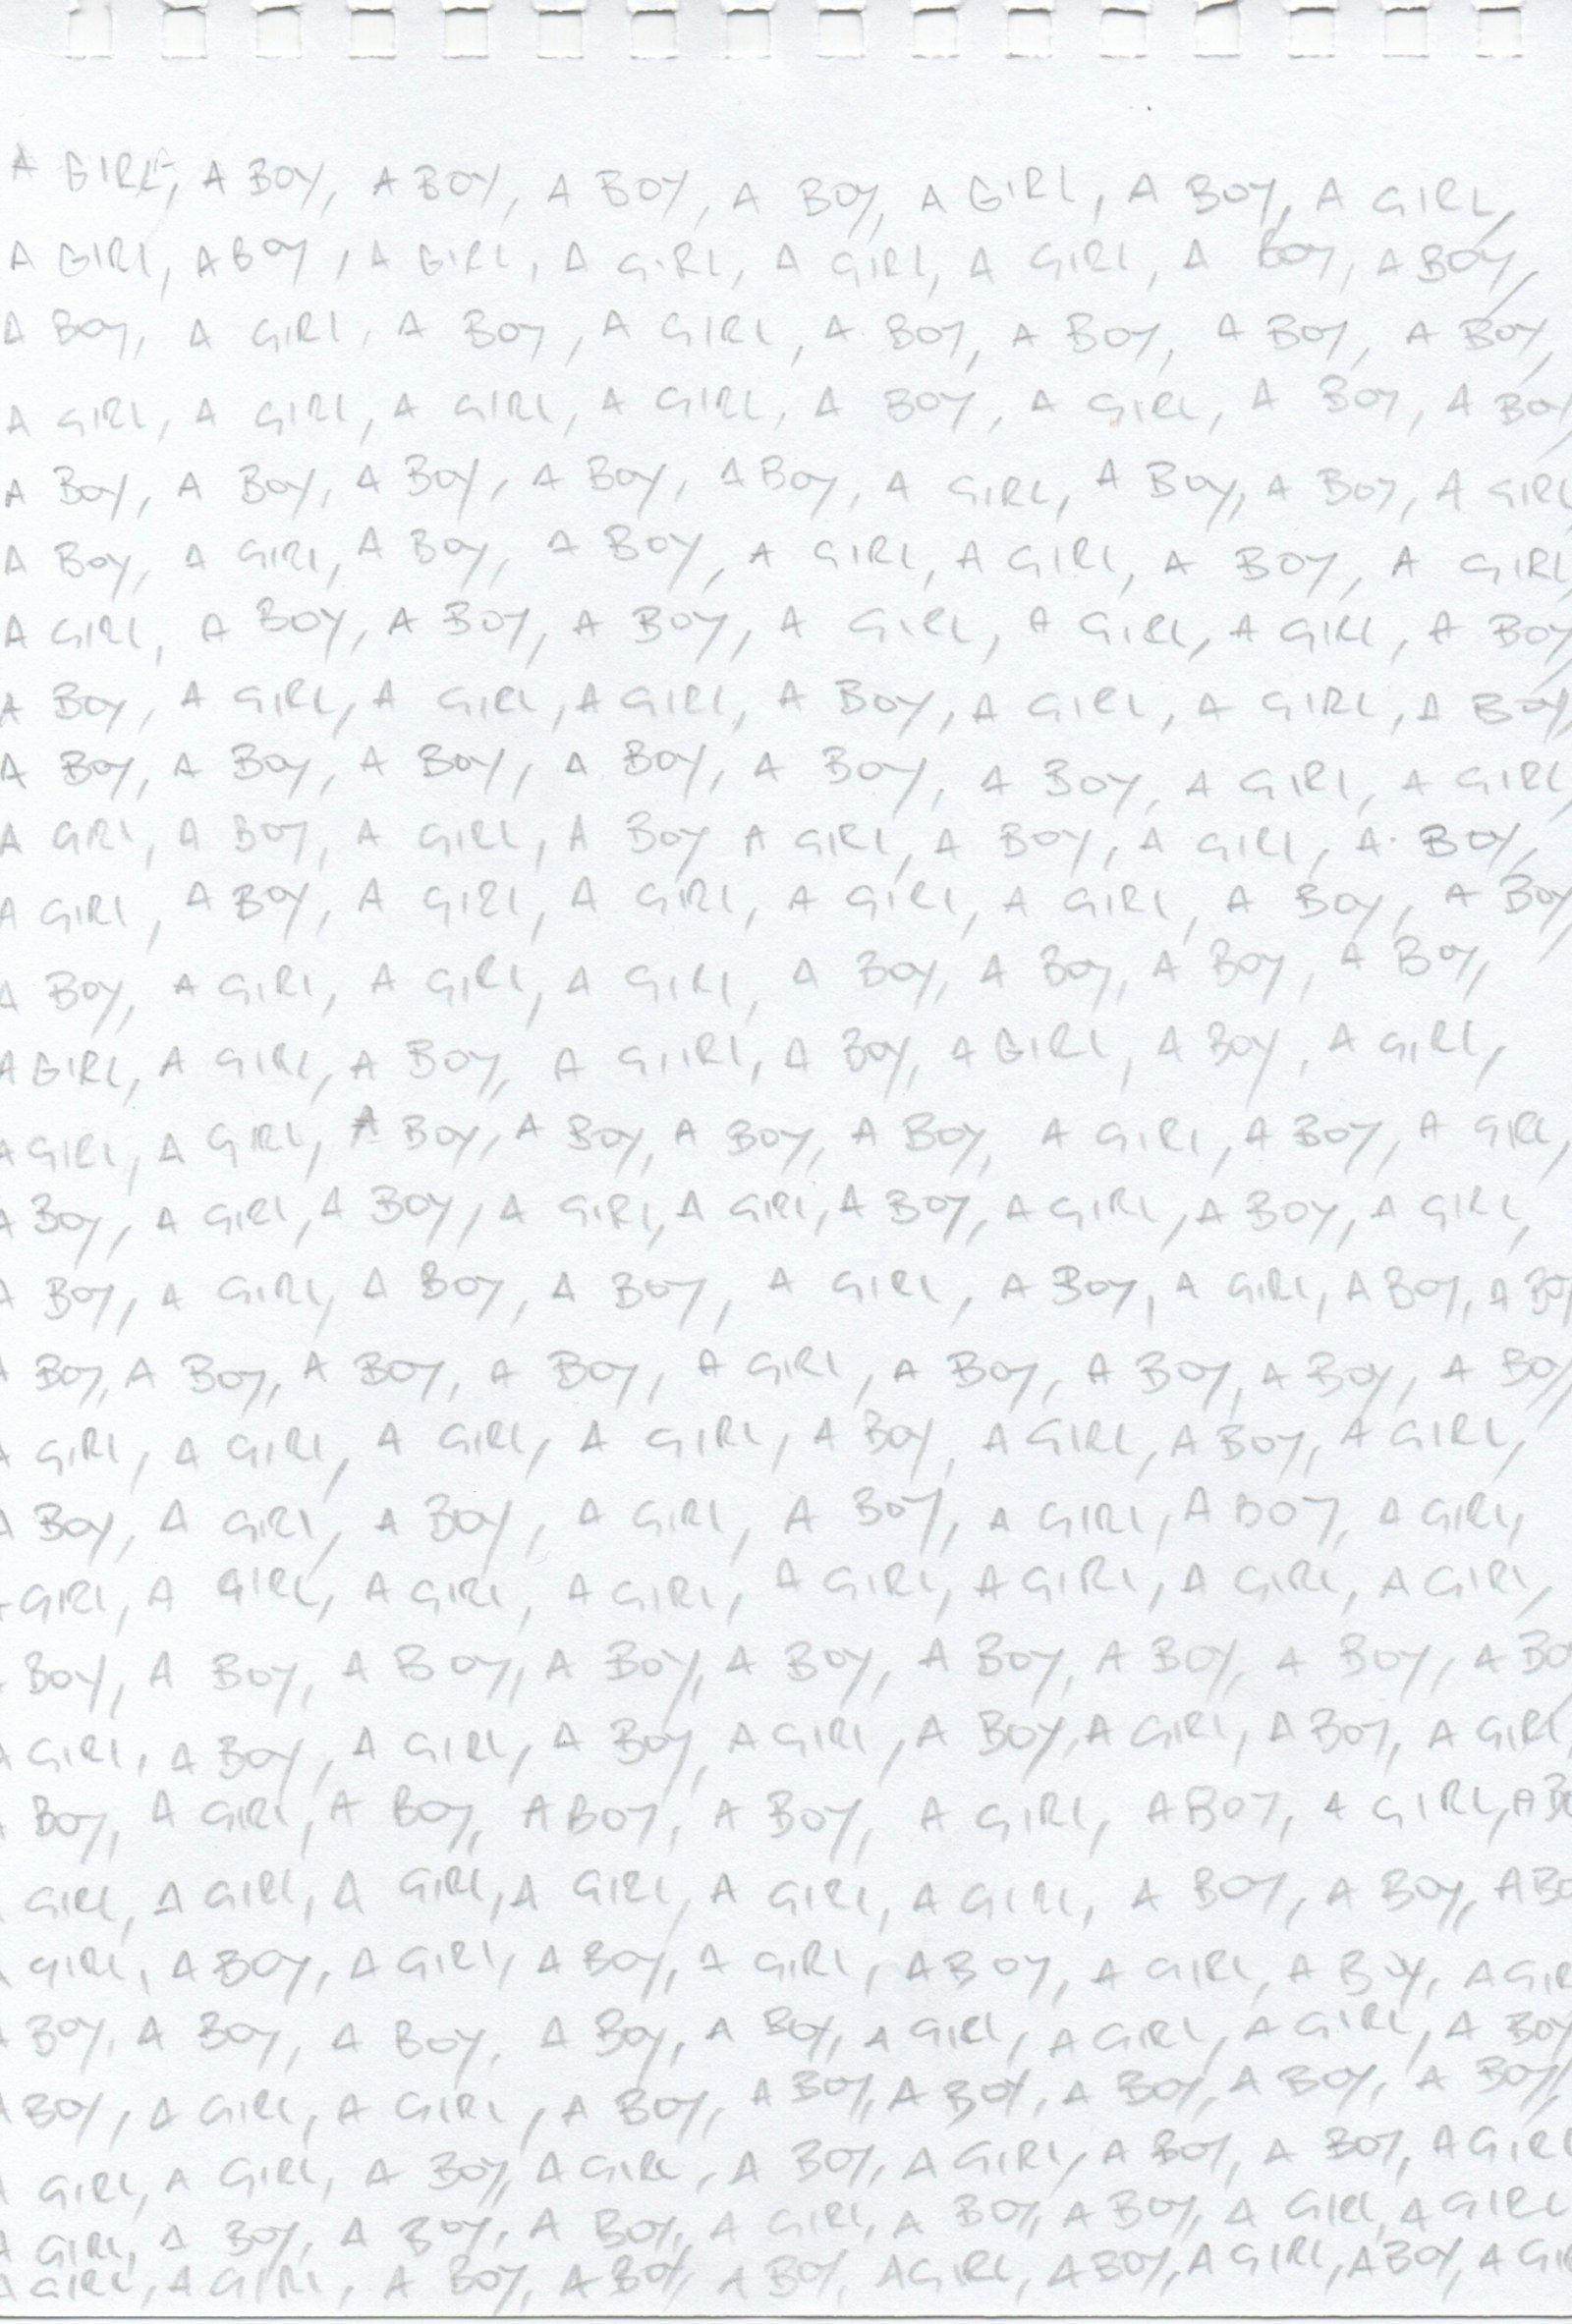 A GIRL, A BOY, A BOY, A BOY, A BOY, A GIRL, A BOY, A GIRL,
A GIRL, A BOY, A GIRL, A GIRL, A GIRL, A GIRL, A BOY, A BOY,
A BOY, A GIRL, A BOY, A GIRL, A BOY, A BOY, A BOY, A BOY,
A GIRL, A GIRL, A GIRL, A GIRL, A BOY, A GIRL, A BOY, A BOY,
A BOY, A BOY, A BOY, A BOY, A BOY, A GIRL, A BOY, A BOY, A GIRL
A BOY, A GIRL, A BOY, A BOY, A GIRL, A GIRL, A BOY, A GIRL,
A GIRL, A BOY, A BOY, A BOY, A GIRL, A GIRL, A GIRL, A BOY
A BOY, A GIRL, A GIRL, A GIRL, A BOY, A GIRL, A GIRL, A BOY,
A BOY, A BOY, A BOY, A BOY, A BOY, A BOY, A GIRL, A GIRL,
A GIRL, A BOY, A GIRL, A BOY A GIRL, A BOY, A GIRL, A BOY,
A GIRL, A BOY, A GIRL, A GIRL, A GIRL, A GIRL, A BOY, A BOY,
A BOY, A GIRL, A GIRL, A GIRL, A BOY, A BOY, A BOY, A BOY,
A GIRL, A GIRL, A BOY, A GIIRL, A BOY, A GIRL, A BOY, A GIRL,
A GIRL, A GIRL, A BOY, A BOY, A BOY, A BOY, A GIRL, A BOY, A GIRL,
A BOY, A GIRL, A BOY, A GIRL, A GIRL, A BOY, A GIRL, A BOY, A GIRL,
A BOY, A GIRL, A BOY, A BOY, A GIRL, A BOY, A GIRL, A BOY, A BOY
A BOY, A BOY, A BOY, A BOY, A GIRL, A BOY, A BOY, A BOY, A BOY,
A GIRL, A GIRL, A GIRL, A GIRL, A BOY, A GIRL, A BOY, A GIRL,
A BOY, A GIRL, A BOY, A GIRL, A BOY, A GIRL, A BOY, A GIRL,
A GIRL, A GIRL, A GIRL, A GIRL, A GIRL, A GIRL, A GIRL, A GIRL,
A BOY, A BOY, A BOY, A BOY, A BOY, A BOY, A BOY, A BOY, A BO
A GIRL, A BOY, A GIRL, A BOY, A GIRL, A BOY, A GIRL, A BOY, A GIRL,
A BOY, A GIRL, A BOY, A BOY, A BOY, A GIRL, A BOY, A GIRL, A BO
GIRL, A GIRL, A GIRL, A GIRL, A GIRL, A GIRL, A BOY, A BOY, A BO
A GIRL, A BOY, A GIRL, A BOY, A GIRL, A BOY, A GIRL, A BOY, A GIR
A BOY, A BOY, A BOY, A BOY, A BOY, A GIRL, A GIRL, A GIRL, A BOY
A BOY, A GIRL, A GIRL, A BOY, A BOY, A BOY, A BOY, A BOY, A BOY,
A GIRL, A GIRL, A BOY, A GIRL, A BOY, A GIRL, A BOY, A BOY, A GIRL
A GIRL, A BOY, A BOY, A BOY, A GIRL, A BOY, A BOY, A GIRL, A GIRL
A GIRL, A GIRL, A BOY, A BOY, A BOY, A GIRL, A BOY, A GIRL, A BOY, A GIR